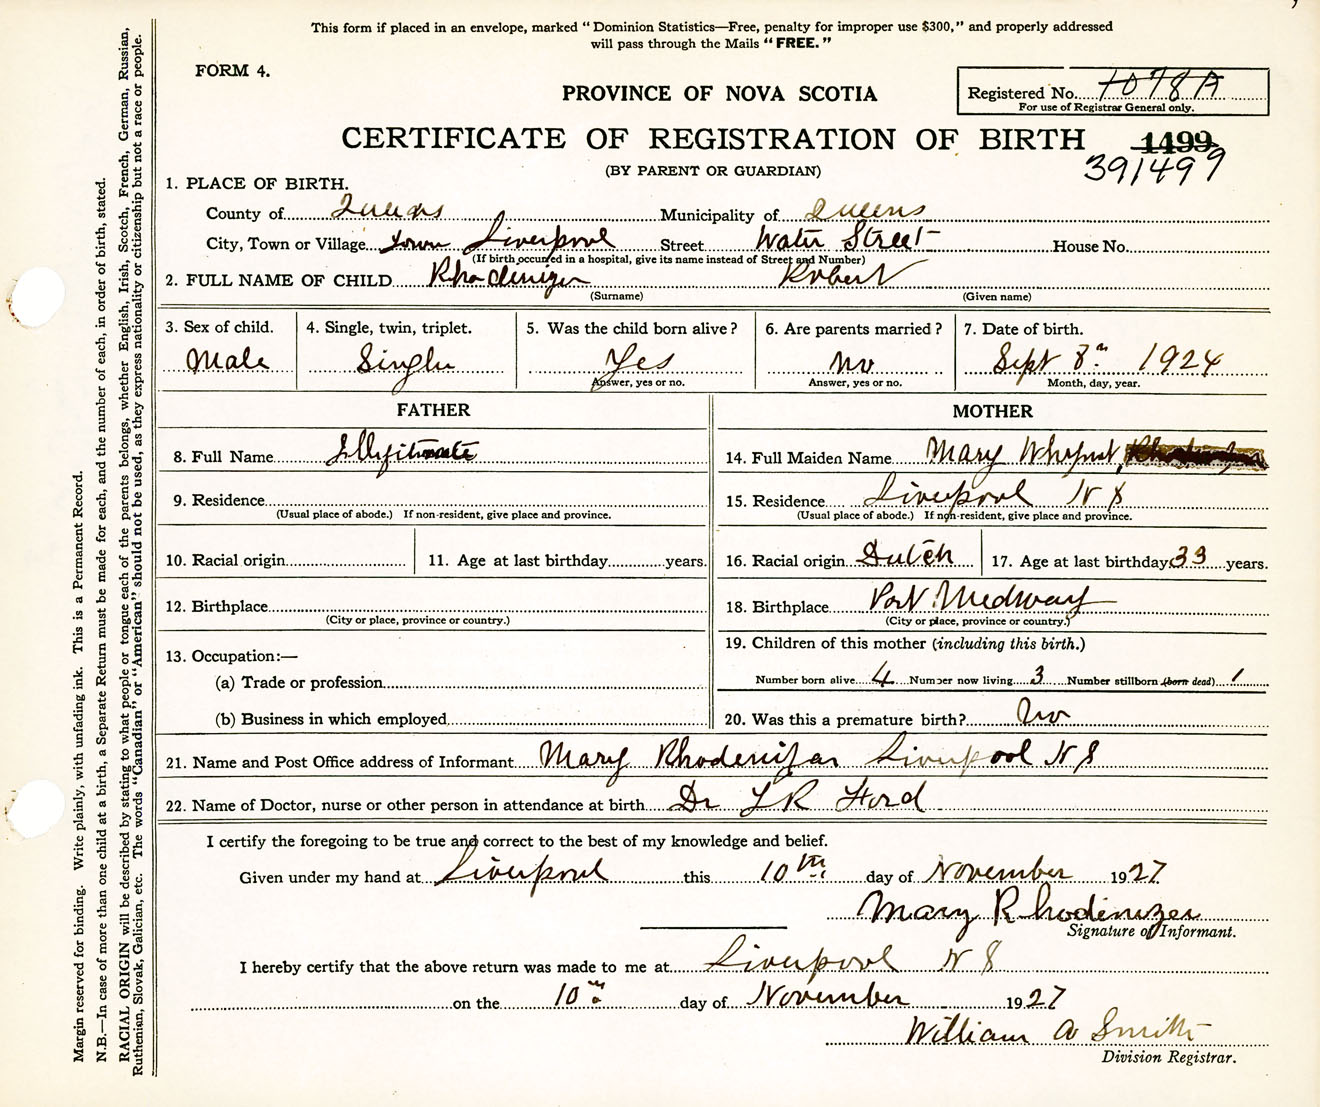 This form if placed in an envelope, marked "Dominion Statistics—Free, penalty for improper use $300," and properly addressed
will pass through the Mails "FREE."
FORM 4.
PROVINCE OF NOVA SCOTIA
Registered No. 1078A
For use of Registrar General only.
CERTIFICATE OF REGISTRATION OF BIRTH 1499
391499
(BY PARENT OR GUARDIAN)
1. PLACE OF BIRTH.
County of Queens Municipality of Queens
City, Town or Village Town Liverpool Street Water Street House No.
(If birth occurred in a hospital, give its name instead of Street and Number)
2. FULL NAME OF CHILD Rhodenizer Robert
(Surname) (Given name)
3. Sex of child. 4. Single, twin, triplet. 5. Was the child born alive? 6. Are parents married? 7. Date of birth.
Male Single Yes No Sept 8th 1924
Answer, yes or no. Answer, yes or no. Month, day, year.
FATHER MOTHER
8. Full Name Illegitimate 14. Full Maiden Name Mary
9. Residence 15. Residence Liverpool N S
(Usual place of abode.) If non-resident, give place and province. (Usual place of abode.) If non-resident, give place and province.
10. Racial origin 11. Age at last birthday years. 16. Racial origin Dutch 17. Age at last birthday 33 years.
12. Birthplace 18. Birthplace Port Medway
(City or place, province or country.) (City or place, province or country.)
19. Children of this mother (including this birth.)
13. Occupation:—
(a) Trade or profession Number born alive 4 Number now living 3 Number stillborn (born dead) 1
(b) Business in which employed 20. Was this a premature birth? No
21. Name and Post Office address of Informant Mary Rhodenizer Liverpool N S
22. Name of Doctor, nurse or other person in attendance at birth Dr Ford
I certify the foregoing to be true and correct to the best of my knowledge and belief.
Given under my hand at Liverpool this 10th day of November 1927
Mary Rhodenizer
Signature of Informant.
I hereby certify that the above return was made to me at Liverpool N S
on the 10th day of November 1927
William A Smith
Division Registrar.
Margin reserved for binding. Write plainly, with unfading ink. This is a Permanent Record.
N.B.—In case of more than one child at a birth, a Separate Return must be made for each, and the number of each, in order of birth, stated.
RACIAL ORIGIN will be described by stating to what people or tongue each of the parents belongs, whether English, Irish, Scotch, French, German, Russian,
Ruthenian, Slovak, Galician, etc. The words "Canadian" or "American" should not be used, as they express nationality or citizenship but not a race or people.